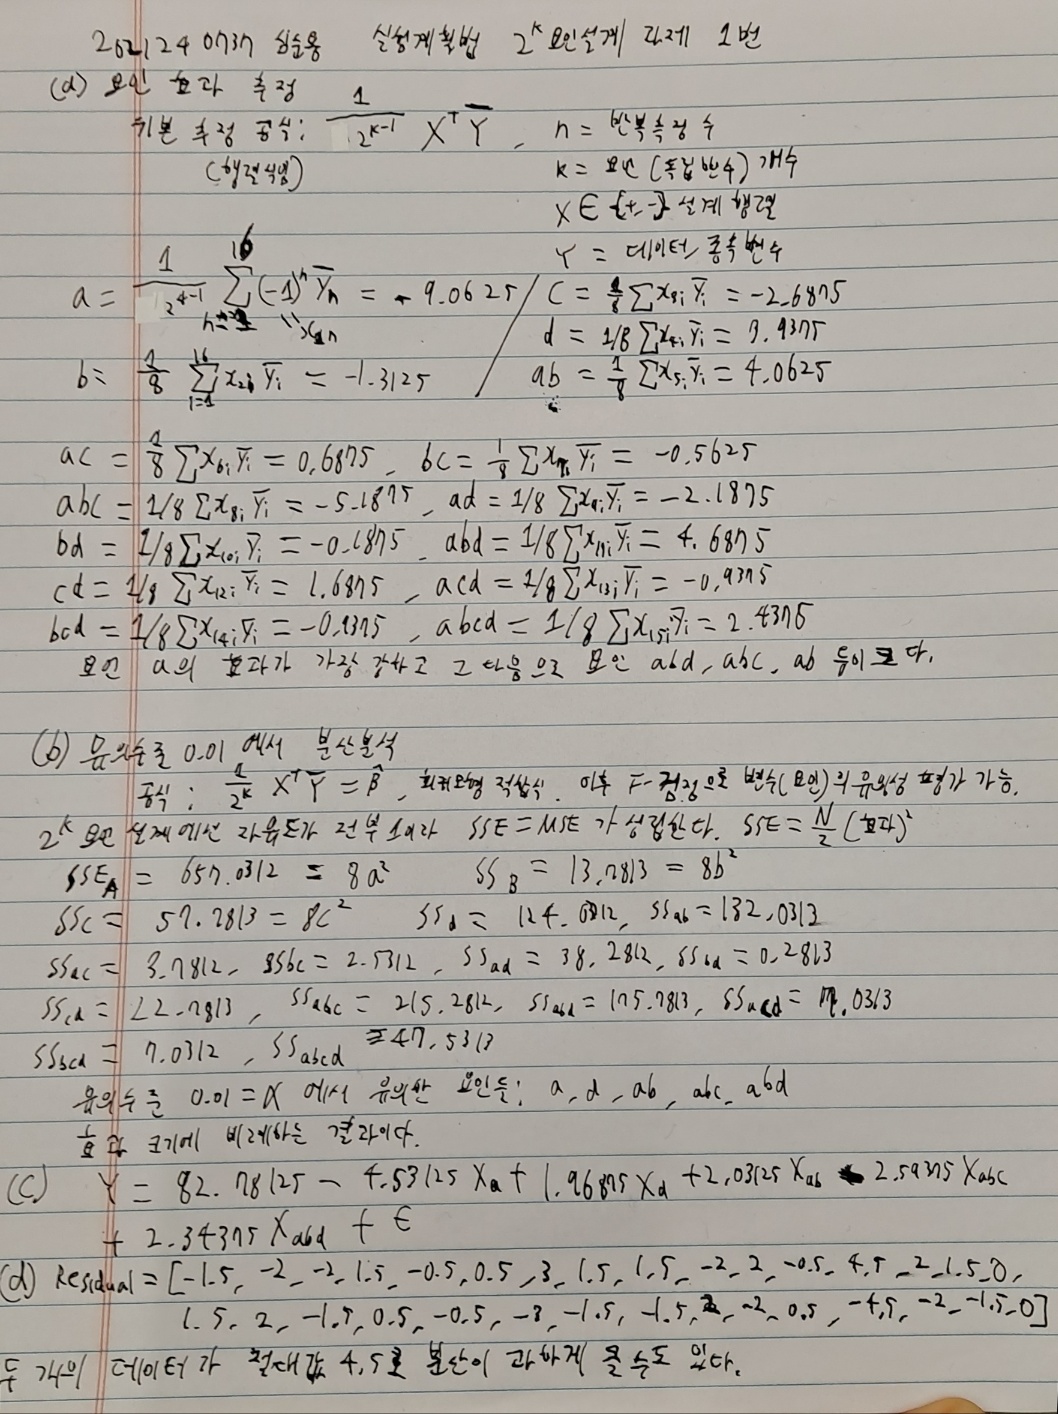 2021240737 심순용 실험계획법 2^k 요인설계 과제 1번
(a) 요인 효과 추정
기본 추정 공식: 1/2^{k-1} X^T Ȳ, n = 반복측정 수
(행렬식임) k = 요인(독립변수) 개수
X ∈ {+,-} 설계 행렬
Y = 데이터, 종속변수
a = 1/2^{4-1} Σ_{n=1}^{16} (-1)^n Ȳn = -9.0625 / C = 1/8 Σx₃ᵢ Ȳᵢ = -2.6875
x₁n d = 1/8 Σx₄ᵢ Ȳᵢ = 3.9375
b = 1/8 Σ_{i=1}^{16} x₂ᵢ Ȳᵢ = -1.3125 / ab = 1/8 Σx₅ᵢ Ȳᵢ = 4.0625
ac = 1/8 Σx₆ᵢ Ȳᵢ = 0.6875, bc = 1/8 Σx₇ᵢ Ȳᵢ = -0.5625
abc = 1/8 Σx₈ᵢ Ȳᵢ = -5.1875, ad = 1/8 Σx₉ᵢ Ȳᵢ = -2.1875
bd = 1/8 Σx₁₀ᵢ Ȳᵢ = -0.1875, abd = 1/8 Σx₁₁ᵢ Ȳᵢ = 4.6875
cd = 1/8 Σx₁₂ᵢ Ȳᵢ = 1.6875, acd = 1/8 Σx₁₃ᵢ Ȳᵢ = -0.9375
bcd = 1/8 Σx₁₄ᵢ Ȳᵢ = -0.9375, abcd = 1/8 Σx₁₅ᵢ Ȳᵢ = 2.4375
요인 a의 효과가 가장 강하고 그 다음으로 요인 abd, abc, ab 등이 크다.
(b) 유의수준 0.01 에서 분산분석
공식: 1/2^k X^T Ȳ = β̂, 회귀모형 적합식. 이후 F-검정으로 변수(요인)의 유의성 평가 가능.
2^k 요인 설계에선 자유도가 전부 1이라 SSE = MSE 가 성립한다. SSE = N/2 (효과)²
SSE_A = 657.0312 = 8a² SS_B = 13.7813 = 8b²
SSc = 57.7813 = 8c² SSd = 124.0312, SSab = 132.0313
SSac = 3.7812, SSbc = 2.5312, SSad = 38.2812, SSbd = 0.2813
SScd = 22.7813, SSabc = 215.2812, SSabd = 175.7813, SSacd = 7.0313
SSbcd = 7.0312, SSabcd = 47.5313
유의수준 0.01 = α 에서 유의한 요인들: a, d, ab, abc, abd
효과 크기에 비례하는 결과이다.
(c) Y = 82.78125 - 4.53125 Xa + 1.96875 Xd + 2.03125 Xab - 2.59375 Xabc
+ 2.34375 Xabd + ε
(d) Residual = [-1.5, -2, -2, 1.5, -0.5, 0.5, 3, 1.5, 1.5, -2, 2, -0.5, 4.5, 2, 1.5, 0,
1.5, 2, -1.5, 0.5, -0.5, -3, -1.5, -1.5, 2, -2, 0.5, -4.5, -2, -1.5, 0]
두 개의 데이터가 절대값 4.5로 분산이 과하게 클 수도 있다.